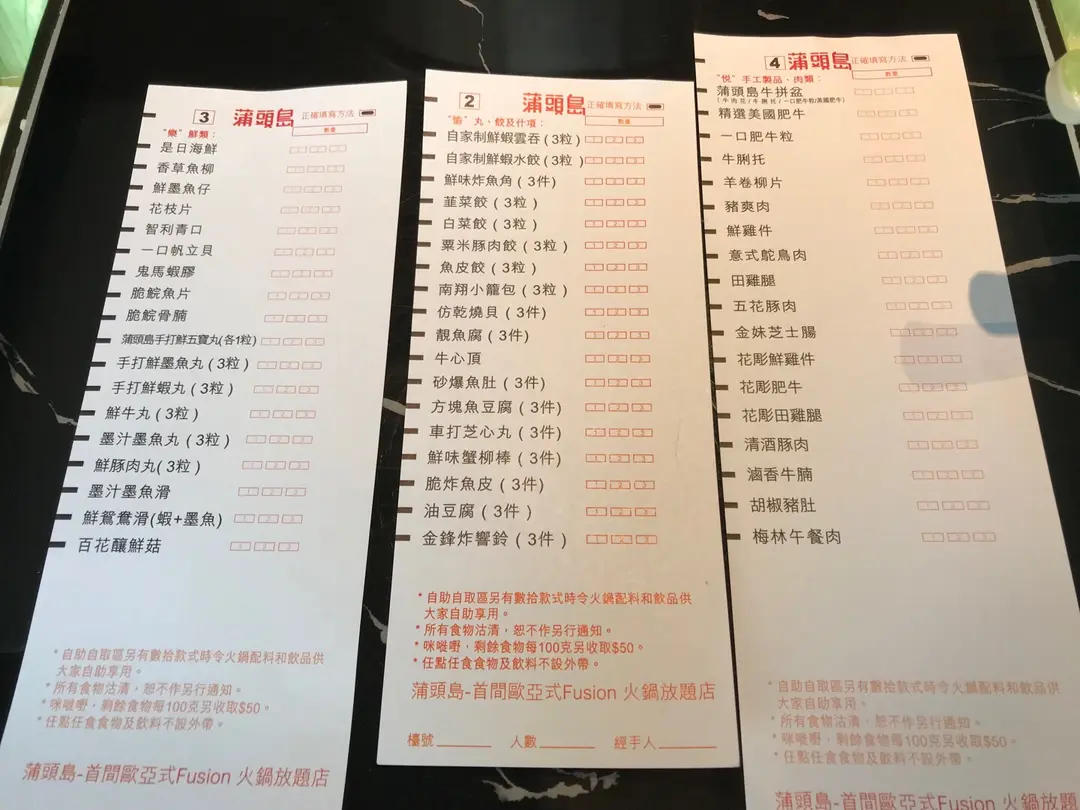 3 蒲頭島 正確填寫方法
數量
"樂"鮮類：
是日海鮮
香草魚柳
鮮墨魚仔
花枝片
智利青口
一口帆立貝
鬼馬蝦膠
脆鯇魚片
脆鯇骨腩
蒲頭島手打鮮五寶丸(各1粒)
手打鮮墨魚丸(3粒)
手打鮮蝦丸(3粒)
鮮牛丸(3粒)
墨汁墨魚丸(3粒)
鮮豚肉丸(3粒)
墨汁墨魚滑
鮮鴛鴦滑(蝦+墨魚)
百花釀鮮菇
*自助自取區另有數拾款式時令火鍋配料和飲品供
大家自助享用。
*所有食物沽清，恕不作另行通知。
*咪嘥嘢，剩餘食物每100克另收取$50。
*任點任食食物及飲料不設外帶。
蒲頭島-首間歐亞式Fusion 火鍋放題店
2 蒲頭島 正確填寫方法
數量
"愉"丸、餃及什項：
自家制鮮蝦雲吞(3粒)
自家制鮮蝦水餃(3粒)
鮮味炸魚角(3件)
韮菜餃(3粒)
白菜餃(3粒)
粟米豚肉餃(3粒)
魚皮餃(3粒)
南翔小籠包(3粒)
仿乾燒貝(3件)
靚魚腐(3件)
牛心頂
砂爆魚肚(3件)
方塊魚豆腐(3件)
車打芝心丸(3件)
鮮味蟹柳棒(3件)
脆炸魚皮(3件)
油豆腐(3件)
金鋒炸響鈴(3件)
*自助自取區另有數拾款式時令火鍋配料和飲品供
大家自助享用。
*所有食物沽清，恕不作另行通知。
*咪嘥嘢，剩餘食物每100克另收取$50。
*任點任食食物及飲料不設外帶。
蒲頭島-首間歐亞式Fusion 火鍋放題店
檯號______ 人數______ 經手人______
4 蒲頭島 正確填寫方法
數量
"悅"手工製品、肉類：
蒲頭島牛拼盆
(牛肉花/牛脷托/一口肥牛粒/美國肥牛)
精選美國肥牛
一口肥牛粒
牛脷托
羊卷柳片
豬爽肉
鮮雞件
意式鴕鳥肉
田雞腿
五花豚肉
金妹芝士腸
花彫鮮雞件
花彫肥牛
花彫田雞腿
清酒豚肉
滷香牛腩
胡椒豬肚
梅林午餐肉
*自助自取區另有數拾款式時令火鍋配料和飲品供
大家自助享用。
*所有食物沽清，恕不作另行通知。
*咪嘥嘢，剩餘食物每100克另收取$50。
*任點任食食物及飲料不設外帶。
蒲頭島-首間歐亞式Fusion 火鍋放題